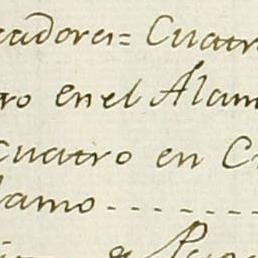 cadores= Cuatro
ro en el Alam
cuatro en C
lamo